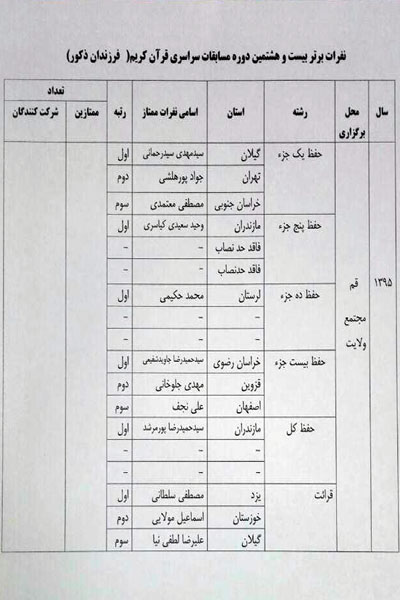 نفرات برتر بیست و هشتمین دوره مسابقات سراسری قرآن کریم( فرزندان ذکور)
سال محل برگزاری رشته استان اسامی نفرات ممتاز رتبه تعداد
ممتازین شرکت کنندگان
۱۳۹۵ قم مجتمع ولایت
حفظ یک جزء گیلان سیدمهدی سیدرحمانی اول
تهران جواد پورهلشی دوم
خراسان جنوبی مصطفی معتمدی سوم
حفظ پنج جزء مازندران وحید سعیدی کیاسری اول
فاقد حد نصاب - -
فاقد حدنصاب - -
حفظ ده جزء لرستان محمد حکیمی اول
- - -
- - -
حفظ بیست جزء خراسان رضوی سیدحمیدرضا جاویدشفیعی اول
قزوین مهدی جلوخانی دوم
اصفهان علی نجف سوم
حفظ کل مازندران سیدحمیدرضا پورمرشد اول
- - -
- - -
قرائت یزد مصطفی سلطانی اول
خوزستان اسماعیل مولایی دوم
گیلان علیرضا لطفی نیا سوم